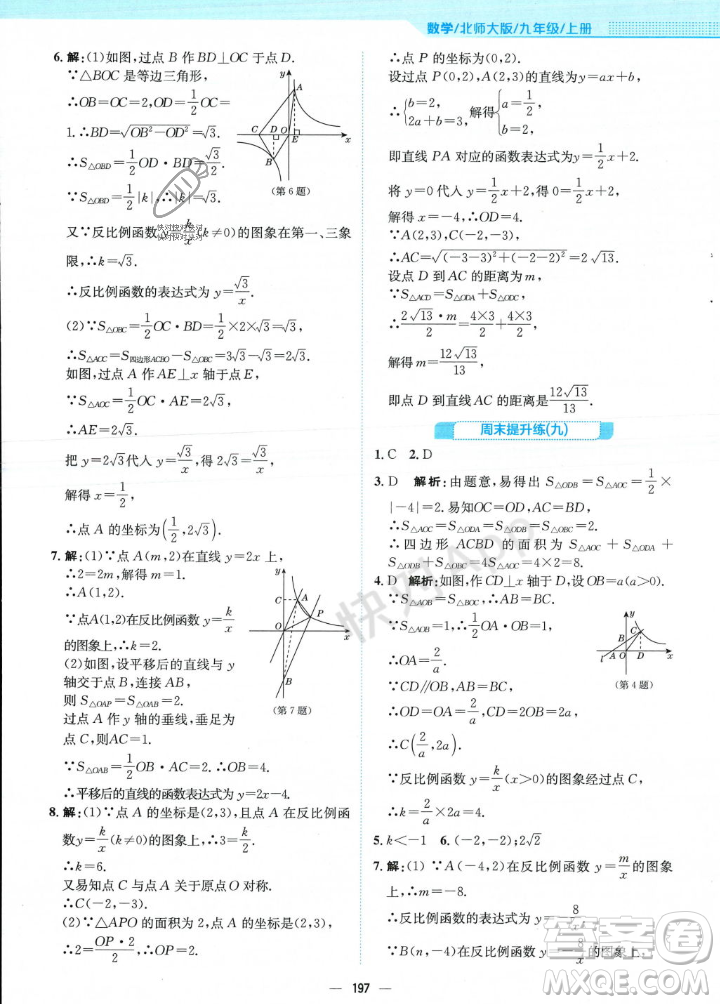 数学/北师大版/九年级/上册
6. 解:(1)如图,过点 B 作 BD⊥OC 于点 D.
∵△BOC 是等边三角形,
∴OB=OC=2,OD=\frac{1}{2}OC=
1.∴BD=\sqrt{OB²-OD²}=\sqrt{3}.
∴S△OBD=\frac{1}{2}OD·BD=\frac{\sqrt{3}}{2}.
∴S△OBD=\frac{1}{2}|k|.∴|k|=\sqrt{3}.
(第 6 题)
又∵反比例函数 y=\frac{k}{x}(k≠0)的图象在第一、三象
限,∴k=\sqrt{3}.
∴反比例函数的表达式为 y=\frac{\sqrt{3}}{x}.
(2)∵S△OBC=\frac{1}{2}OC·BD=\frac{1}{2}×2×\sqrt{3}=\sqrt{3},
∴S△AOC=S四边形ACBO-S△OBC=3\sqrt{3}-\sqrt{3}=2\sqrt{3}.
如图,过点 A 作 AE⊥x 轴于点 E.
∵S△AOC=\frac{1}{2}OC·AE=2\sqrt{3},
∴AE=2\sqrt{3}.
把 y=2\sqrt{3}代入 y=\frac{\sqrt{3}}{x},得 2\sqrt{3}=\frac{\sqrt{3}}{x}.
解得 x=\frac{1}{2}.
∴点 A 的坐标为(\frac{1}{2},2\sqrt{3}).
7. 解:(1)∵点 A(m,2)在直线 y=2x 上,
∴2=2m,解得 m=1.
∴A(1,2).
∵点 A(1,2)在反比例函数 y=\frac{k}{x}
的图象上,∴k=2.
(2)如图,设平移后的直线与 y
轴交于点 B,连接 AB,
则 S△OAP=S△OAB=2.
过点 A 作 y 轴的垂线,垂足为
点 C,则 AC=1.
(第 7 题)
∵S△OAB=\frac{1}{2}OB·AC=2,
∴OB=4.
∴平移后的直线的函数表达式为 y=2x-4.
8. 解:(1)∵点 A 的坐标是(2,3),且点 A 在反比例函
数y=\frac{k}{x}(k≠0)的图象上,∴3=\frac{k}{2}.
∴k=6.
又易知点 C 与点 A 关于原点 O 对称.
∴C(-2,-3).
(2)∵△APO 的面积为 2,点 A 的坐标是(2,3),
∴2=\frac{OP·2}{2},解得 OP=2.
∴点 P 的坐标为(0,2).
设过点 P(0,2),A(2,3)的直线为 y=ax+b.
∴{b=2, 2a+b=3,解得{a=\frac{1}{2}, b=2.
即直线 PA 对应的函数表达式为 y=\frac{1}{2}x+2.
将 y=0 代入 y=\frac{1}{2}x+2,得 0=\frac{1}{2}x+2.
解得 x=-4.∴OD=4.
∵A(2,3),C(-2,-3),
∴AC=\sqrt{(-3-3)²+(-2-2)²}=2\sqrt{13}.
设点 D 到 AC 的距离为 m,
∵S△ACD=S△ODA+S△ODC,
∴\frac{2\sqrt{13}·m}{2}=\frac{4×3}{2}+\frac{4×3}{2}.
解得 m=\frac{12\sqrt{13}}{13},
即点 D 到直线 AC 的距离是\frac{12\sqrt{13}}{13}.
周末提升练(九)
1. C 2. D
3. D 解析:由题意,易得出 S△ODB=S△AOC=\frac{1}{2}×
|-4|=2.易知OC=OD,AC=BD,
∴S△AOC=S△ODA=S△ODB=S△OBC.
∴四边形 ACBD 的面积为 S△AOC+S△ODA+
S△ODB+S△OBC=4×2=8.
4. D 解析:如图,作CD⊥x 轴于 D,设 OB=a(a>0).
∵S△AOB=S△BOC=1,∴\frac{1}{2}OA·OB=1.
∴OA=\frac{2}{a}.
∵CD∥OB,AB=BC,
∴OD=OA=\frac{2}{a},CD=2OB=2a,
(第 4 题)
∴C(\frac{2}{a},2a).
∵反比例函数 y=\frac{k}{x}(x>0)的图象经过点 C,
∴k=\frac{2}{a}·2a=4.
5. k<-1 6. (-2,-2);2\sqrt{2}
7. 解:(1) ∵A(-4,2)在反比例函数 y=\frac{m}{x}的图象
上,∴m=-8.
∴反比例函数的表达式为 y=-\frac{8}{x}.
∵B(n,-4)在反比例函数 y=-\frac{8}{x}的图象上,
197
快对App
快对快对快对
答案圈